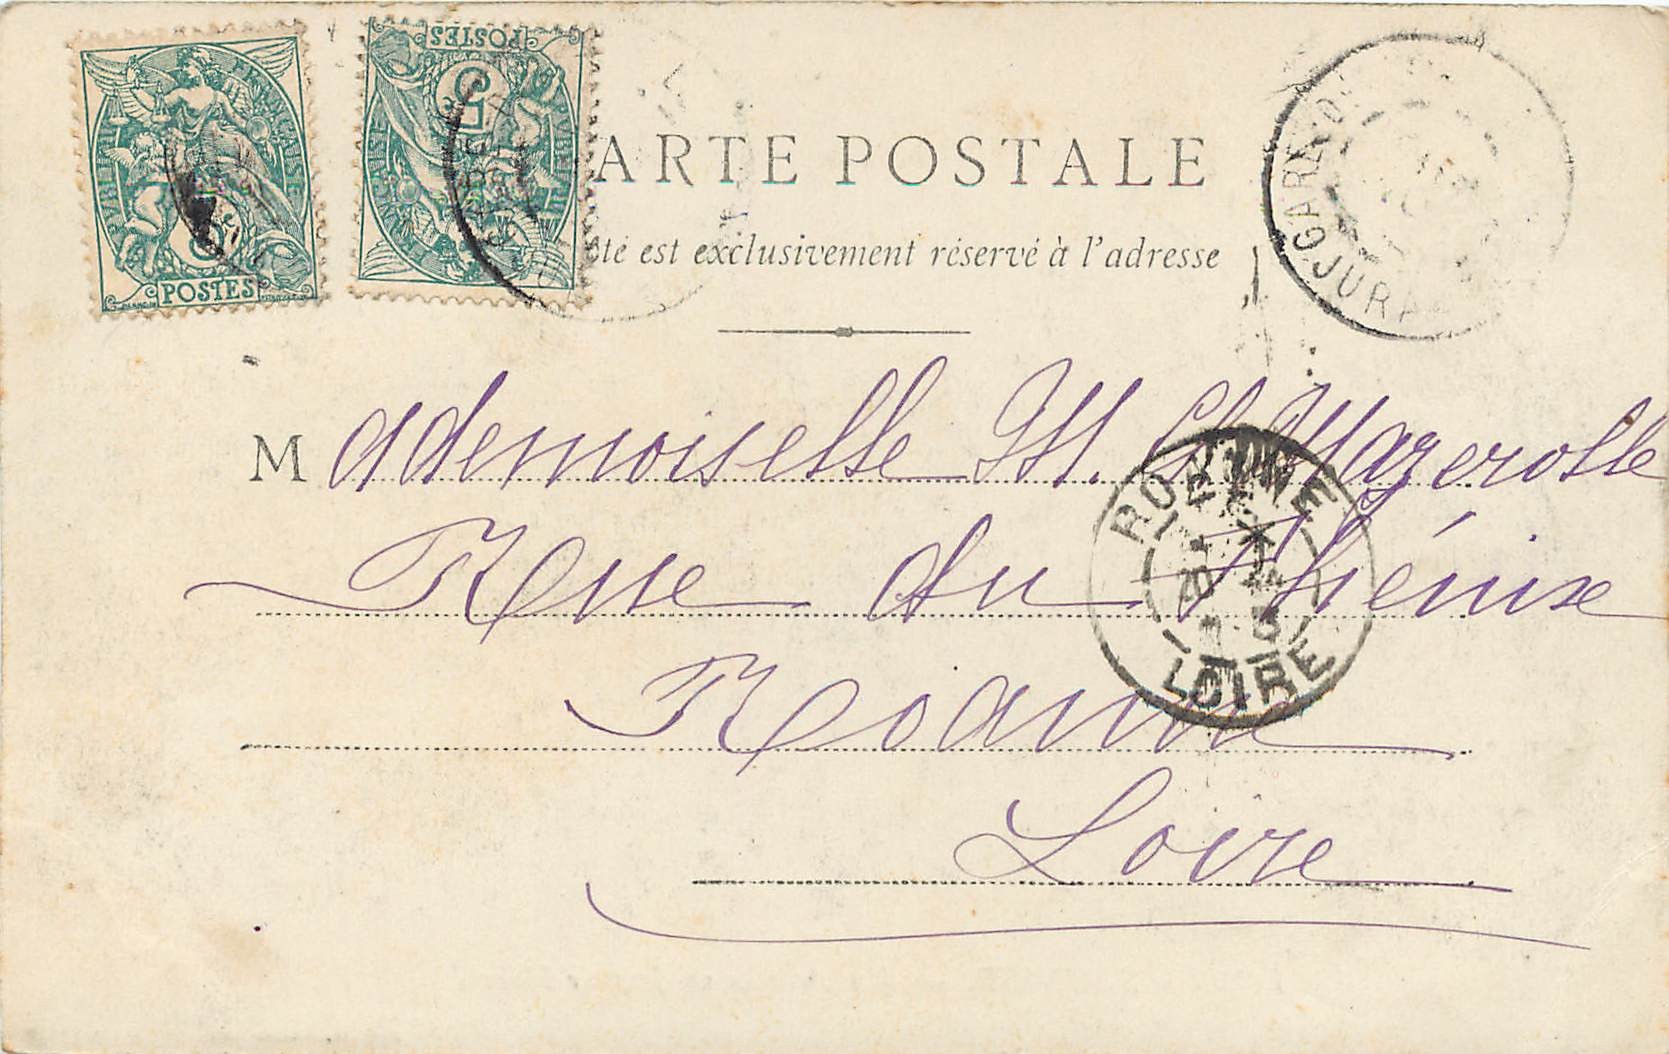 RÉPUBLIQUE FRANÇAISE
5
POSTES
RÉPUBLIQUE FRANÇAISE
5
POSTES
ARTE POSTALE
ôté est exclusivement réservé à l'adresse
GARE
JURA
Mademoiselle M. Mazerolle
Rue du Phénix
Roanne
Loire
ROANNE
20
LOIRE